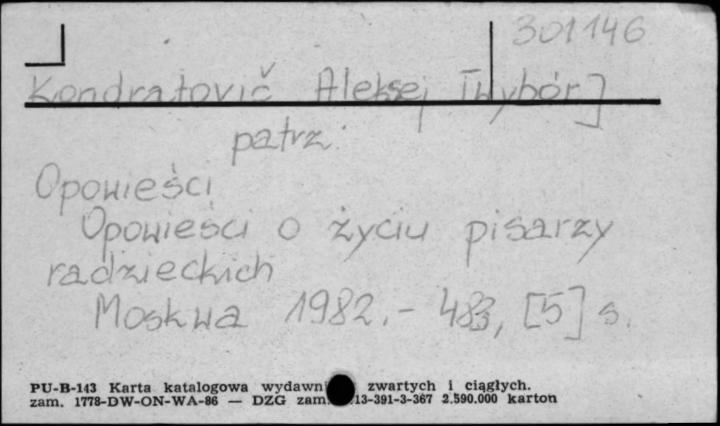 301146
Kondratovič Aleksej [Wybór]
patrz:
Opowieści
Opowieści o życiu pisarzy
radzieckich
Moskwa 1982.- 483, [5] s.
PU-B-143 Karta katalogowa zwartych i ciągłych.
zam. 1778-DW-ON-WA-86 — DZG zam. 13-391-3-367 2.590.000 karton